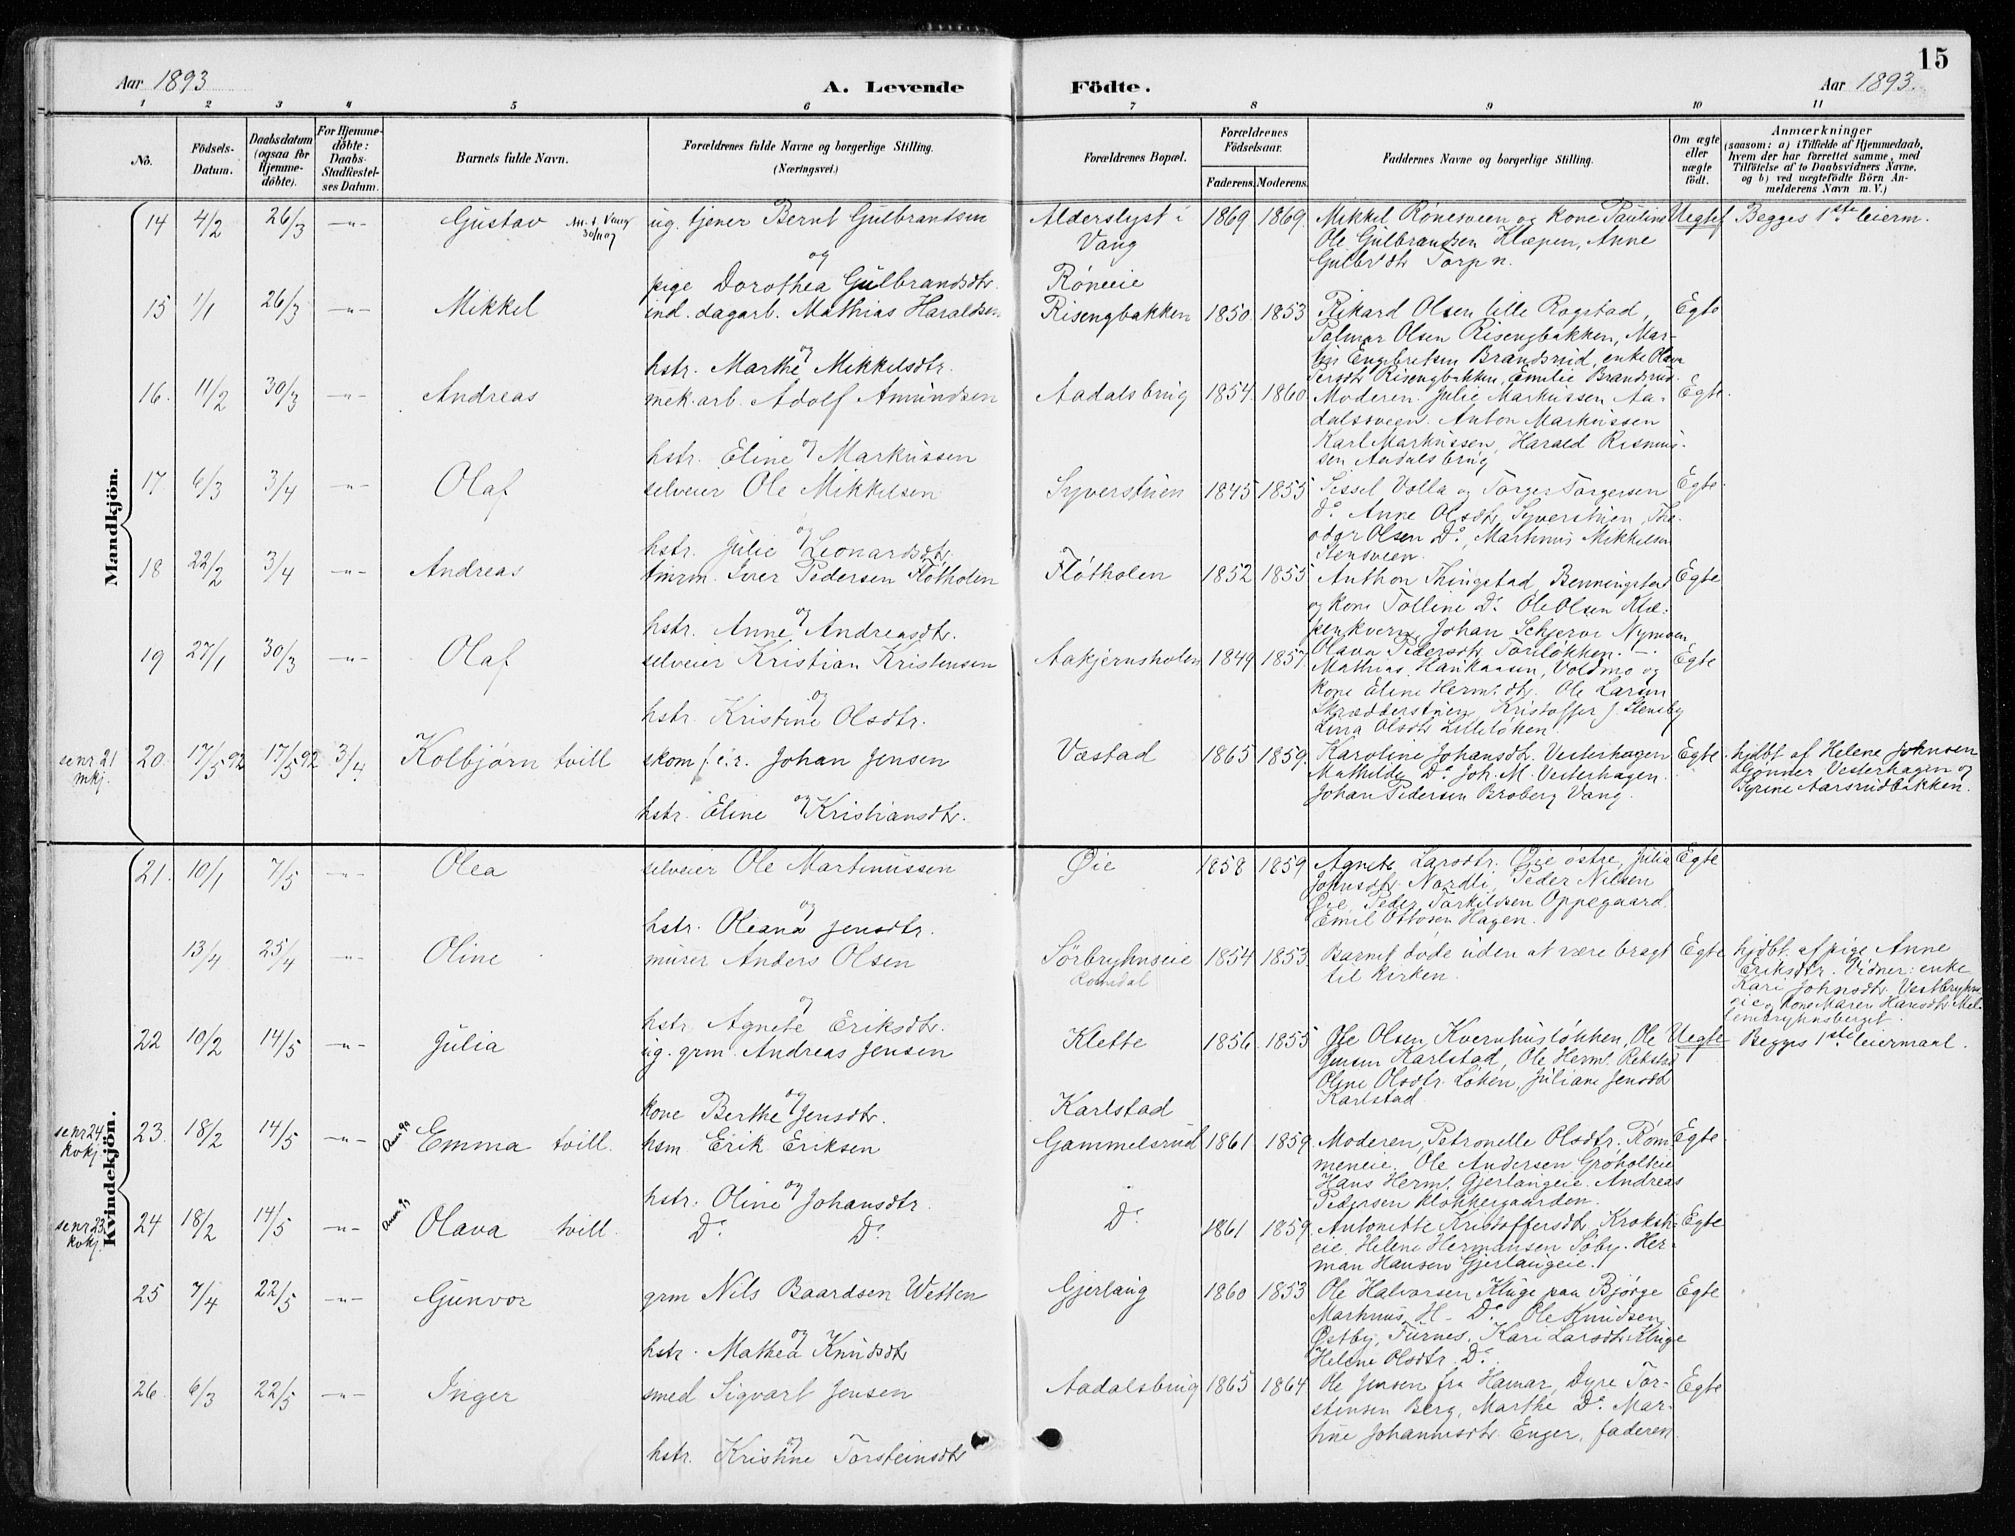 15
Aar 1893
A. Levende
Födte.
Aar 1893.
1 2 3 4 5 6 7 8 9 10 11
No.
Födsels-
Datum.
Daabsdatum
(ogsaa for
Hjemme-
döbte).
For Hjemme-
döbte:
Daabs-
Stadfæstel-
ses Datum.
Barnets fulde Navn.
Forældrenes fulde Navne og borgerlige Stilling.
(Næringsvei.)
Forældrenes Bopæl.
Forældrenes
Födselsaar.
Faderens. Moderens.
Faddernes Navne og borgerlige Stilling.
Om ægte
eller
uægte
født.
Anmærkninger
(saasom: a) i Tilfælde af Hjemmedaab,
hvem der har forrettet samme, med
Tilföielse af to Daabsvidners Navne,
og b) ved uægtefödte Börn An-
melderens Navn m. V.)
Mandkjön.
14 4/2 26/3 -"- Gustav ug. tjener Bernt Gulbrandsen
og
pige Dorothea Gulbrandsdtr.
Alderslyst i
Vang
Røneeie
1869 1869. Mikkel Rønesveen og kone Pauline
Ole Gulbrandsen Klæpen, Anne
Gulbrdtr Torp n.
Uegte Begges 1ste leierm.
15 1/1 26/3 -"- Mikkel ind. dagarb. Mathias Haraldsen
og
hstr. Marthe Mikkelsdtr.
Risengbakken 1850. 1853 Rikard Olsen lille Rogstad,
Palmar Olsen Risengbakken, Mar-
Engebretsen Brandsrud, enke Olava
Persdtr Risengbakken, Emilie Brandsrud.
Egte
16. 11/2 30/3 -"- Andreas mek. arb. Adolf Amundsen
og
hstr. Eline Markussen
Aadalsbrug 1854. 1860. Moderen. Julie Markussen Aa-
dalsveen. Anton Markussen
Karl Markussen, Harald Rasmus-
sen Aadalsbrug
Egte.
17 6/3 3/4 -"- Olaf selveier Ole Mikkelsen
og
hstr. Julie Leonardsdtr.
Syverstuen 1845 1855 Sissel Volla og Torger Torgersen
Do. Anne Olsdtr Syverstuen, The-
odor Olsen Do, Martinus Mikkelsen
Stensveen.
Egte.
18 22/2 3/4 -"- Andreas tmrm. Iver Pedersen Fløtholen
og
hstr. Anne Andreasdtr.
Fløtholen 1852 1855 Anthon Thingstad, Benningstad
og kone Tolline Do. Ole Olsen Klæ-
penkvern, Johan Schjerve Nymoen,
Olava Pedersdtr
Egte
19 27/1 30/3 -"- Olaf selveier Kristian Kristensen
og
hstr. Kristine Olsdtr.
Aakjernsholen 1849 1857. Mathias Haukaasen, Voldmo og
kone Eline Herm.dtr. Ole Larsen
Skrædderstuen Kristoffer J. Stensby
Lina Olsdtr Lilleløken.
Egte
se nr 21
mkj.
20. 17/5 92 17/5 92 3/4 Kolbjørn tvill skom f.e.r. Johan Jensen
og
hstr. Eline Kristiansdtr.
Væstad 1865 1859. Karoline Johansdtr. Vesterhagen
Mathilde Do. Joh. M. Vesterhagen.
Johan Pedersen Broberg Vang.
Egte. hjdbt af Helene Johnsen
Gønner Vesterhagen og
Syrine Aarsrudbakken.
Kvindekjön.
21. 10/1 7/5 -"- Olea selveier Ole Martinussen
og
hstr. Oleana Jensdtr.
Øie 1858 1859 Agnete Larsdtr. Øie østre, Julia
Johnsdtr Nordli, Peder Nilsen
Øie, Peder Torkildsen Oppegaard.
Emil Ottosen Hagen.
Egte
13/4 25/4 -"- Oline murer Anders Olsen
og
hstr. Agnete Eriksdtr.
Sørbryhnseie
Romedal
1854 1853. Barnet døde uden at være bragt
til kirken.
Egte hjdbt. af pige Anne
Eriksdtr. Vidner: enke
Kari Johnsdtr. Vestbryhns
eie og kone Maren Hansdtr Mel-
lembryhnsberget.
22 10/2 14/5 -"- Julia ug. grm. Andreas Jensen
og
kone Berthe Jensdtr.
Klette
Karlstad
1856. 1855 Ole Olsen Kvernhusløkken, Ole
Jensen Karlstad, Ole Herm. Rekstad
Oline Olsdtr. Løken, Juliane Jensdtr
Karlstad.
Uegte Begges 1ste leiermaal.
se nr 24
kvkj.
23. 18/2 14/5 -"- Emma tvill. hsm. Erik Eriksen
og
hstr. Oline Johansdtr.
Gammelsrud 1861 1859. Moderen, Petronelle Olsdtr. Røm-
meneie. Ole Andersen Grøholteie
Hans Herm. Gjerlaugeie. Andreas
Pedersen Klokkergaarden.
Egte.
se nr 23
kvkj.
24 18/2 14/5 -"- Olava tvill. Do. Do.
Do 1861 1859. Antonette Kristoffersdtr. Krokst-
eie, Helene Hermansen Søby. Her-
man Hansen Gjerlaugeie.
Egte
25 7/4 22/5 -"- Gunvor grm Nils Baardsen Wetten
og
hstr. Mathea Knudsdtr
Gjerlaug 1860 1853 Ole Halvorsen Kluge paa Bjørge
Martinus H- Do. Ole Knudsen
Østby, Furnes, Kari Larsdtr Kluge
Helene Olsdtr. Do.
Egte
26. 6/3 22/5 -"- Inger smed Sigvart Jensen
og
hstr. Kristine Torsteinsdtr
Aadalsbrug 1865 1864 Ole Jensen fra Hamar, Dyre Tor-
stensen Berg, Marthe Do. Mar-
tine Johannesdtr. Enger, faderen
Egte